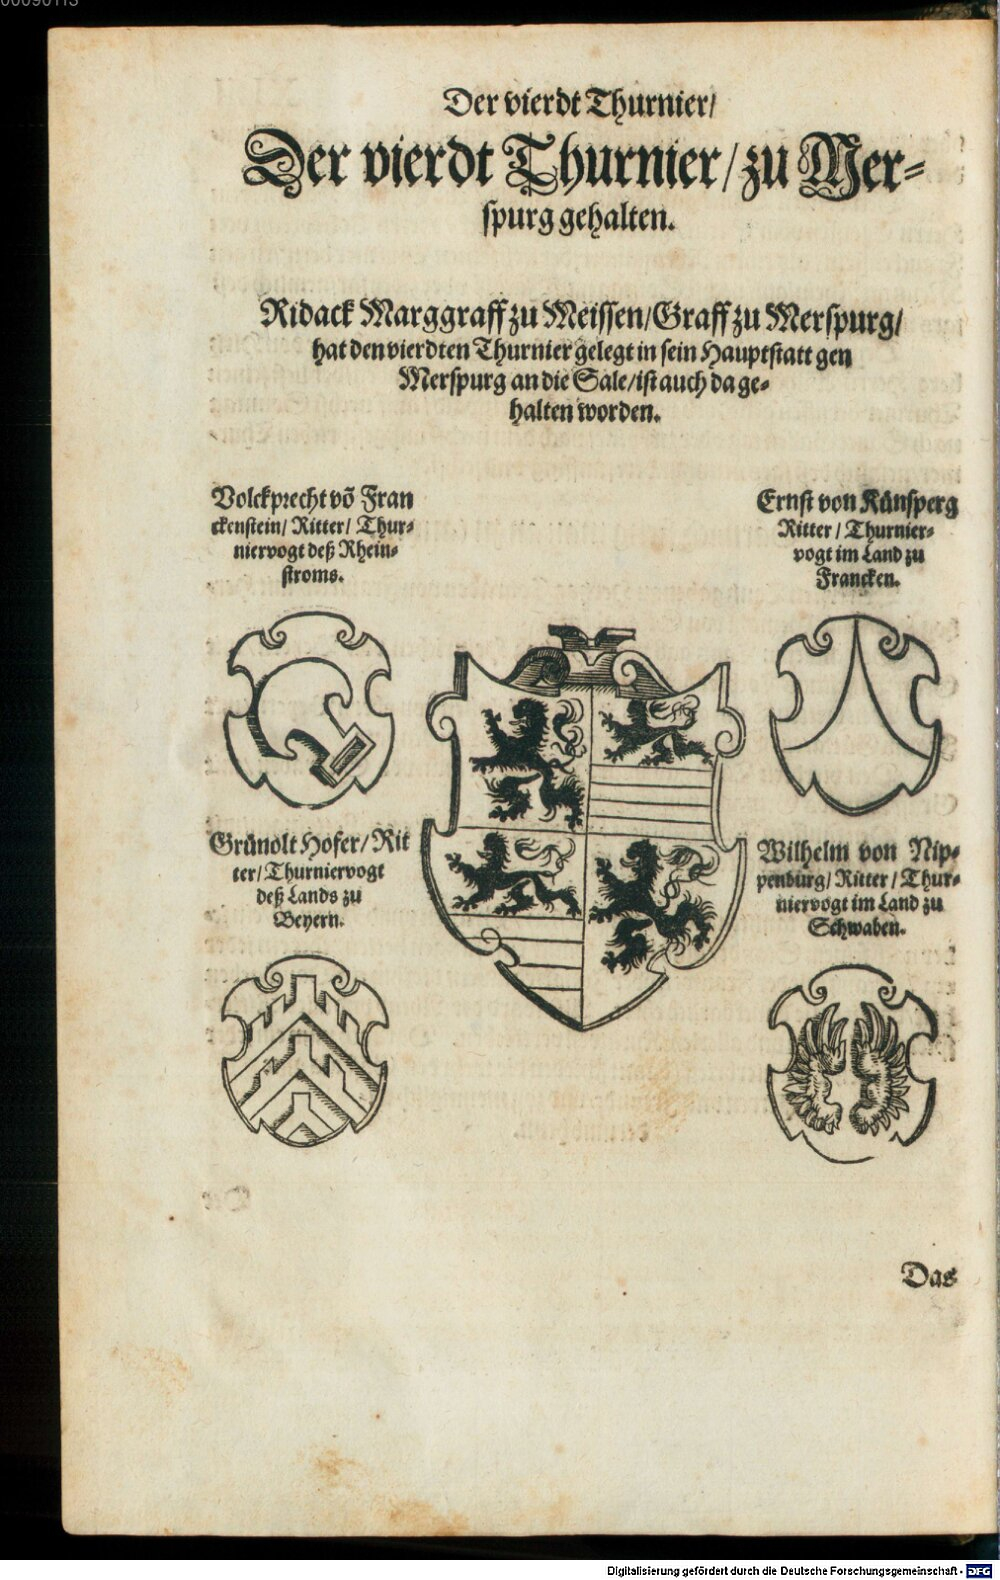 Der vierdt Thurnier/
Der vierdt Thurnier/ zu Mer-
spurg gehalten.
Ridack Marggraff zu Meissen/ Graff zu Merspurg/
hat den vierdten Thurnier gelegt in sein Hauptstatt gen
Merspurg an die Sale/ ist auch da ge-
halten worden.
Volckprecht võ Fran
ckenstein/ Ritter/ Thur-
niervogt deß Rhein-
stroms.
Ernst von Künsperg
Ritter / Thurnier-
vogt im Land zu
Francken.
Grünolt Hofer/ Rit
ter/ Thurniervogt
deß Lands zu
Beyern.
Wilhelm von Nip-
penburg/ Ritter / Thur-
niervogt im Land zu
Schwaben.
Das
Digitalisierung gefördert durch die Deutsche Forschungsgemeinschaft - DFG